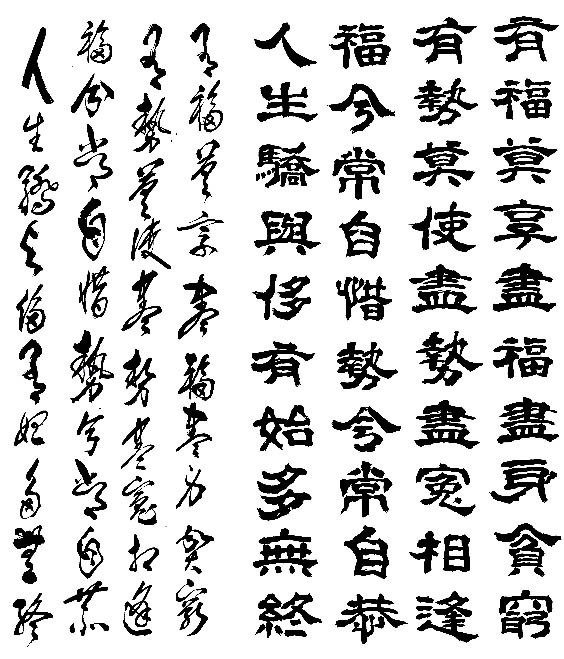 有福莫享盡福盡身貧窮
有勢莫使盡勢盡冤相逢
福兮常自惜勢兮常自恭
人生驕與侈有始多無終
有福莫享盡福盡身貧窮
有勢莫使盡勢盡冤相逢
福兮常自惜勢兮常自恭
人生驕與侈有始多無終